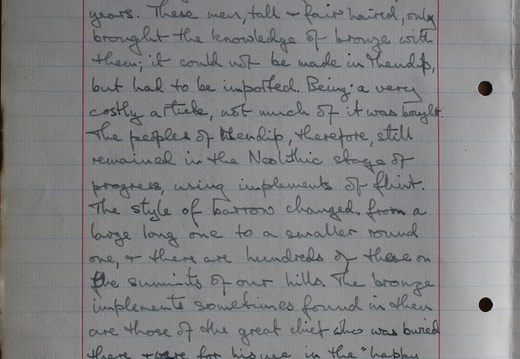 years. These men, tall & fair haired, only
brought the knowledge of bronze with
them; it could not be made in Mendip,
but had to be imported. Being a very
costly article, not much of it was bought.
The peoples of Mendip, therefore, still
remained in the Neolithic stage of
progress, using implements of flint.
The style of barrow changed from a
large long one to a smaller round
one, & there are hundreds of these on
the summits of our hills. The bronze
implements sometimes found in them
are those of the great chief who was buried
there & were for his use in the "happy